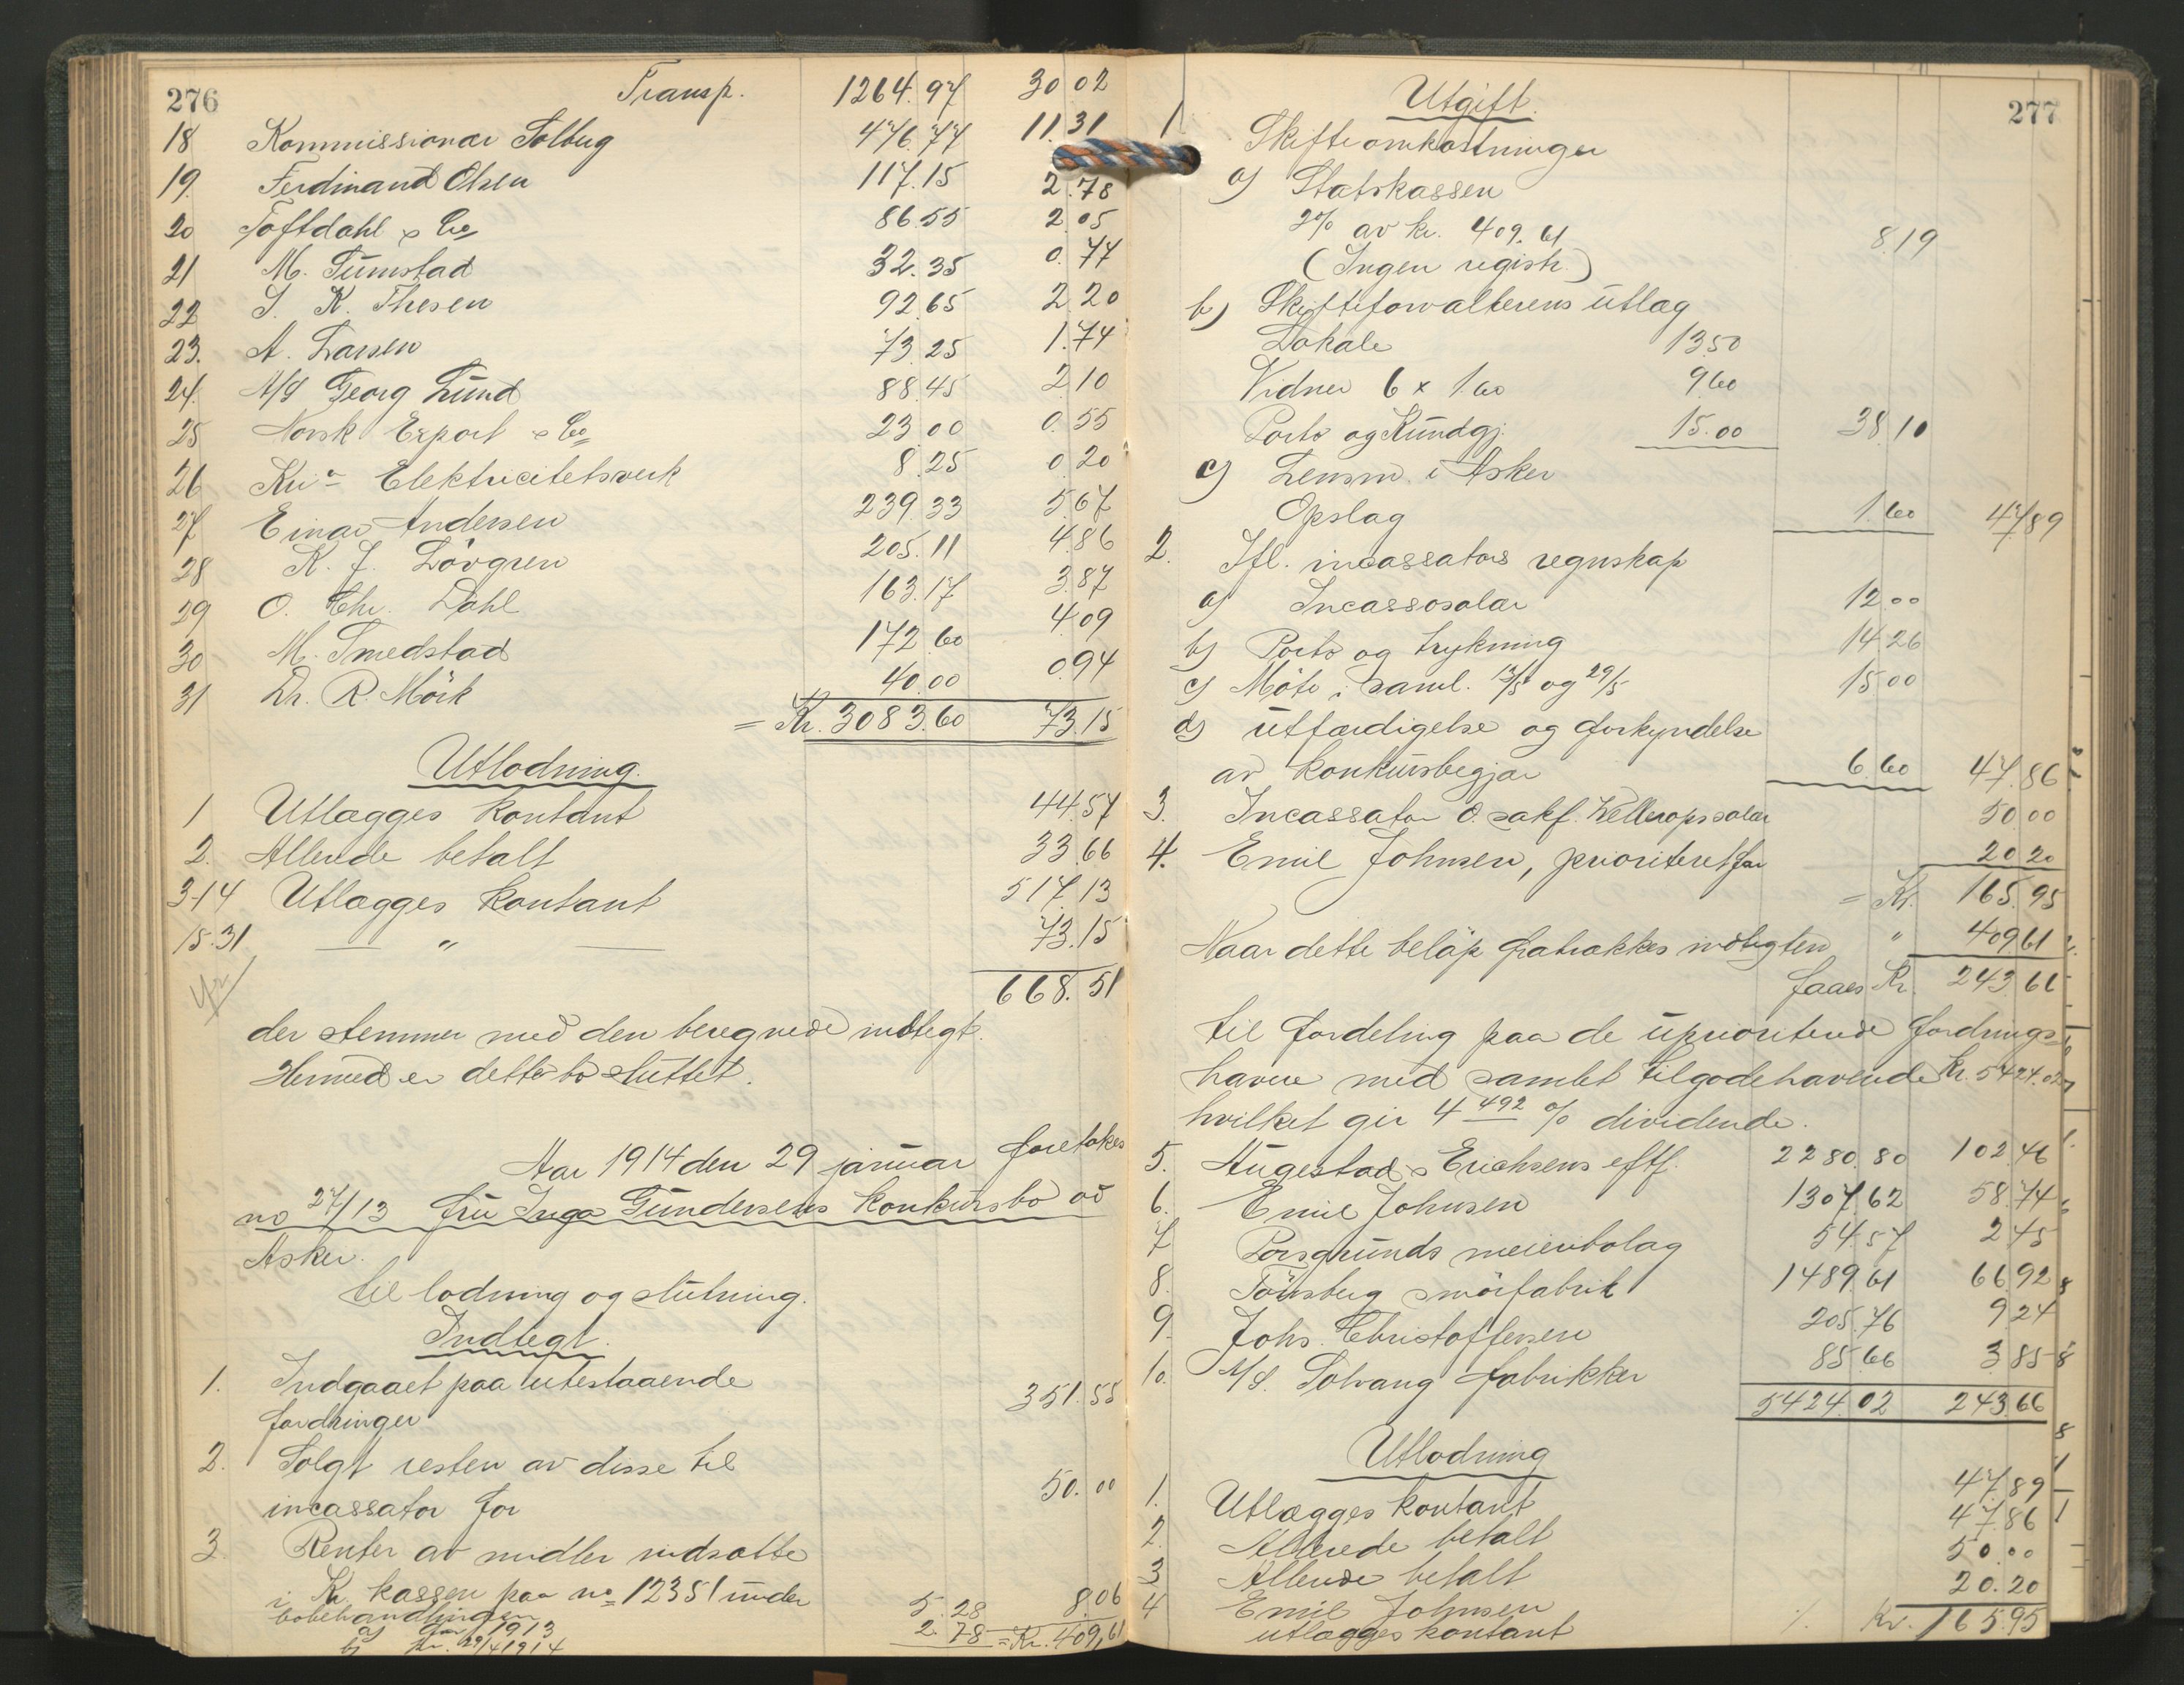 276
Transp. 1264.97 30 02
18 Kommissionær Solberg 476.77 11.31
19. Ferdinand Olsen 117.15 2.78
20 Toftdahl & Co 86 55 2.05
21 M. Tumstad 32.35 0.77
22 S. K. Thesen 92 65 2 20
23. A. Larsen 73.25 1.74
24. A/S Georg Lund 88.45 2 10
25 Norsk Export & Co 23 00 0.55
26 Kr.a Elektricitetsverk 8.25 0 20
27 Einar Andersen 239.33 5.67
28 K. J. Lövgren 205.11 4.86
29 O. Chr. Dahl 163.17 3.87
30 M. Smedstad 172 60 4 09
31 Dr. R. Mörk 40.00 0.94
= Kr. 3083.60 73.15
Utlodning.
1 Utlægges kontant 44.57
2. Allerede betalt 33.66
3-14 Utlægges kontant 517.13
15.31 — " — 73.15
668.51
der stemmer med den beregnede indtegt.
Hermed er dette bo sluttet.
Aar 1914 den 29 januar foretokes
no 27/13 fru Inga Gundersens konkursbo av
Asker.
til lodning og slutning.
Indtegt.
1. Indgaaet paa utestaaende
fordringer 351.55
2. Solgt resten av disse til
incassator for 50.00
3 Renter av midler indsatte
i Kr. kassen paa no 12351 under
bobehandlingen
a) for 1913 5.28 8.06
b) pr. 29/1 1914 2.78 = Kr. 409,61
277
Utgift.
1. Skifteomkostninger
a) Statskassen
2% av kr. 409.61 8.19
(Ingen registr.)
b) Skifteforvalterens utlæg
Lokale 13.50
Vidner 6 x 1.60 9.60
Porto og Kundgj. 15.00 38.10
c) Lensm. i Asker
Opslag 1.60 47.89
2. Ifl. incassators regnskap
a) Incassosalær 12 00
b) Porto og trykning 14 26
c) Möte i saml. 13/5 og 29/5 15 00
d) utfærdigelse og forkyndelse
av konkursbegjær 6.60 47.86
3. Incassator O. sakf. salær 50 00
4. Emil Johnsen, prioritert for 20 20
= Kr. 165.95
Naar dette belöp fratrækkes indtegten " 409 61
faaes Kr. 243 66
til fordeling paa de uprioriterede fordrings-
havere med samlet tilgodehavende Kr. 5424.02
hvilket gir 4 492 % dividende.
5. Augestad & Erichsens eftf. 2280.80 102.46
6. Emil Johnsen 1307.62 58.74
7 Porsgrunds meieribolag 54.57 2 45
8. Tönsberg smörfabrik 1489.61 66.92
9. Johs. Christoffersen 205.76 9 24
10. A/S. Solvang fabrikker 85.66 3.85
5424.02 243.66
Utlodning
1. Utlægges kontant 47.89
2. Allerede betalt 47.86
3 Allerede betalt 50.00
4 Emil Johnsen 20.20
utlægges kontant ./. Kr. 165.95